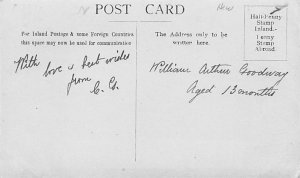 POST CARD
New
Half-Penny
Stamp
Inland.
Penny
Stamp
Abroad
For Inland Postage & some Foreign Countries
this space may now be used for communication
The Address only to be
written here.
With love & best wishes
from
C. G.
William Arthur Goodway
Aged 13 months